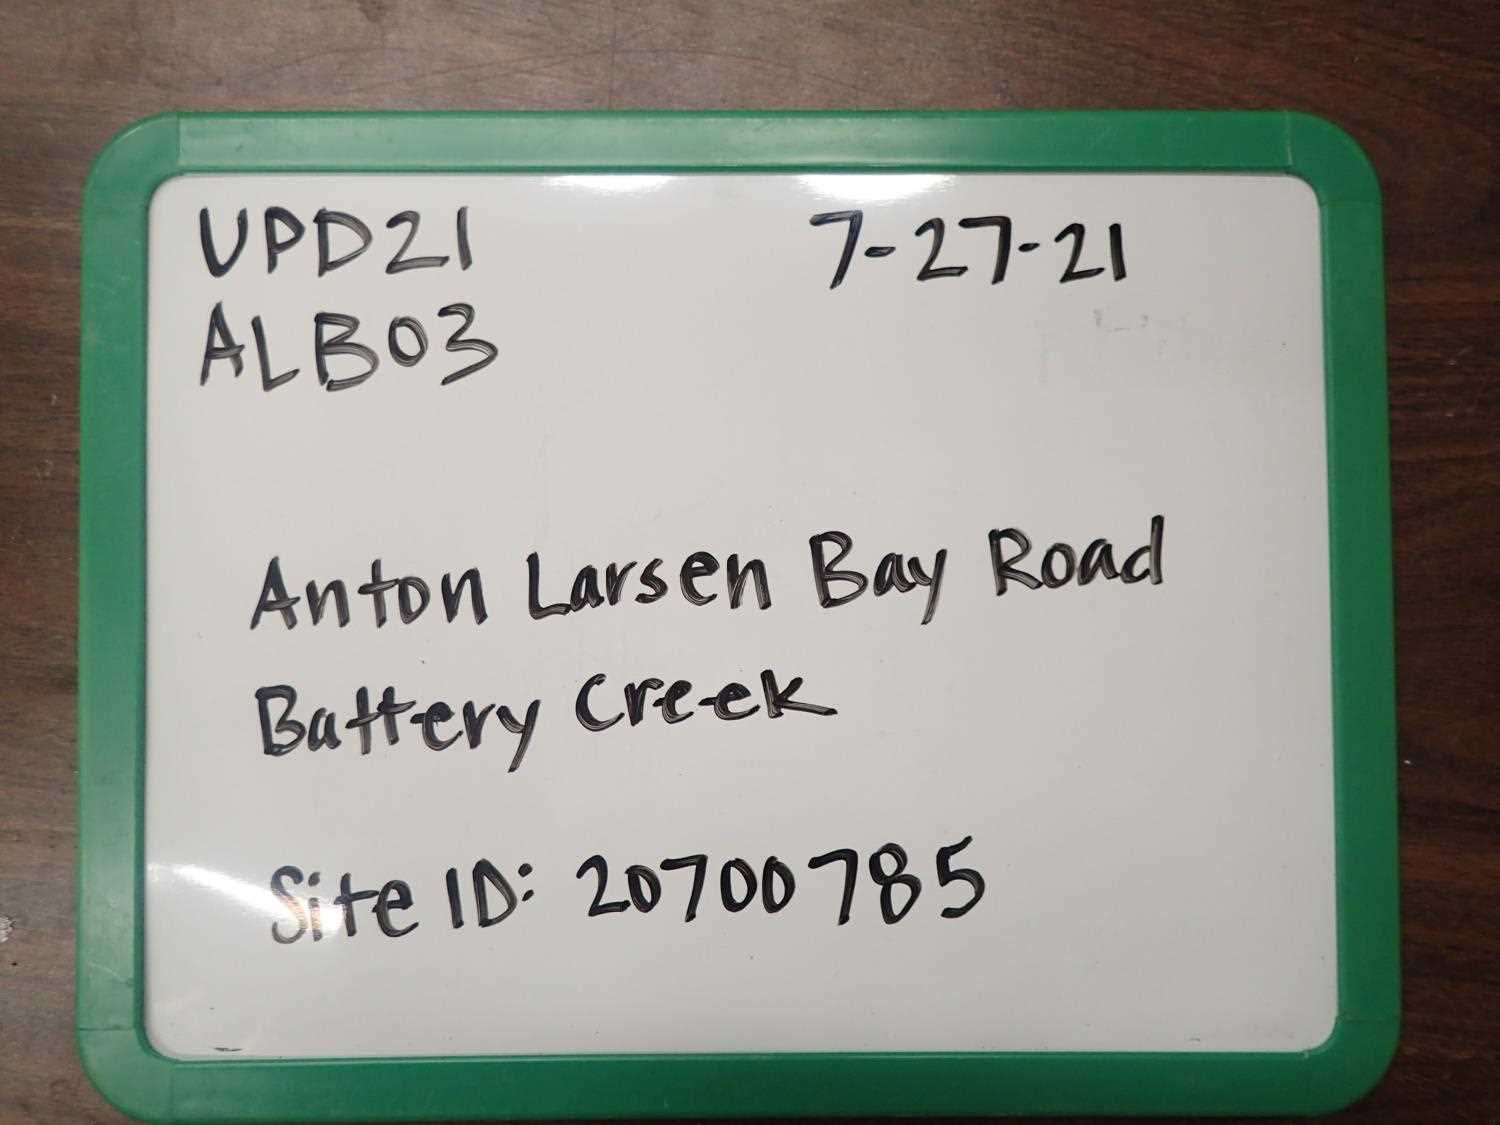 UPD21 7-27-21
ALB03
Anton Larsen Bay Road
Battery Creek
Site ID: 20700785